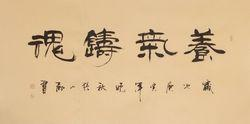 養氣鑄魂
歲次庚寅年晚秋